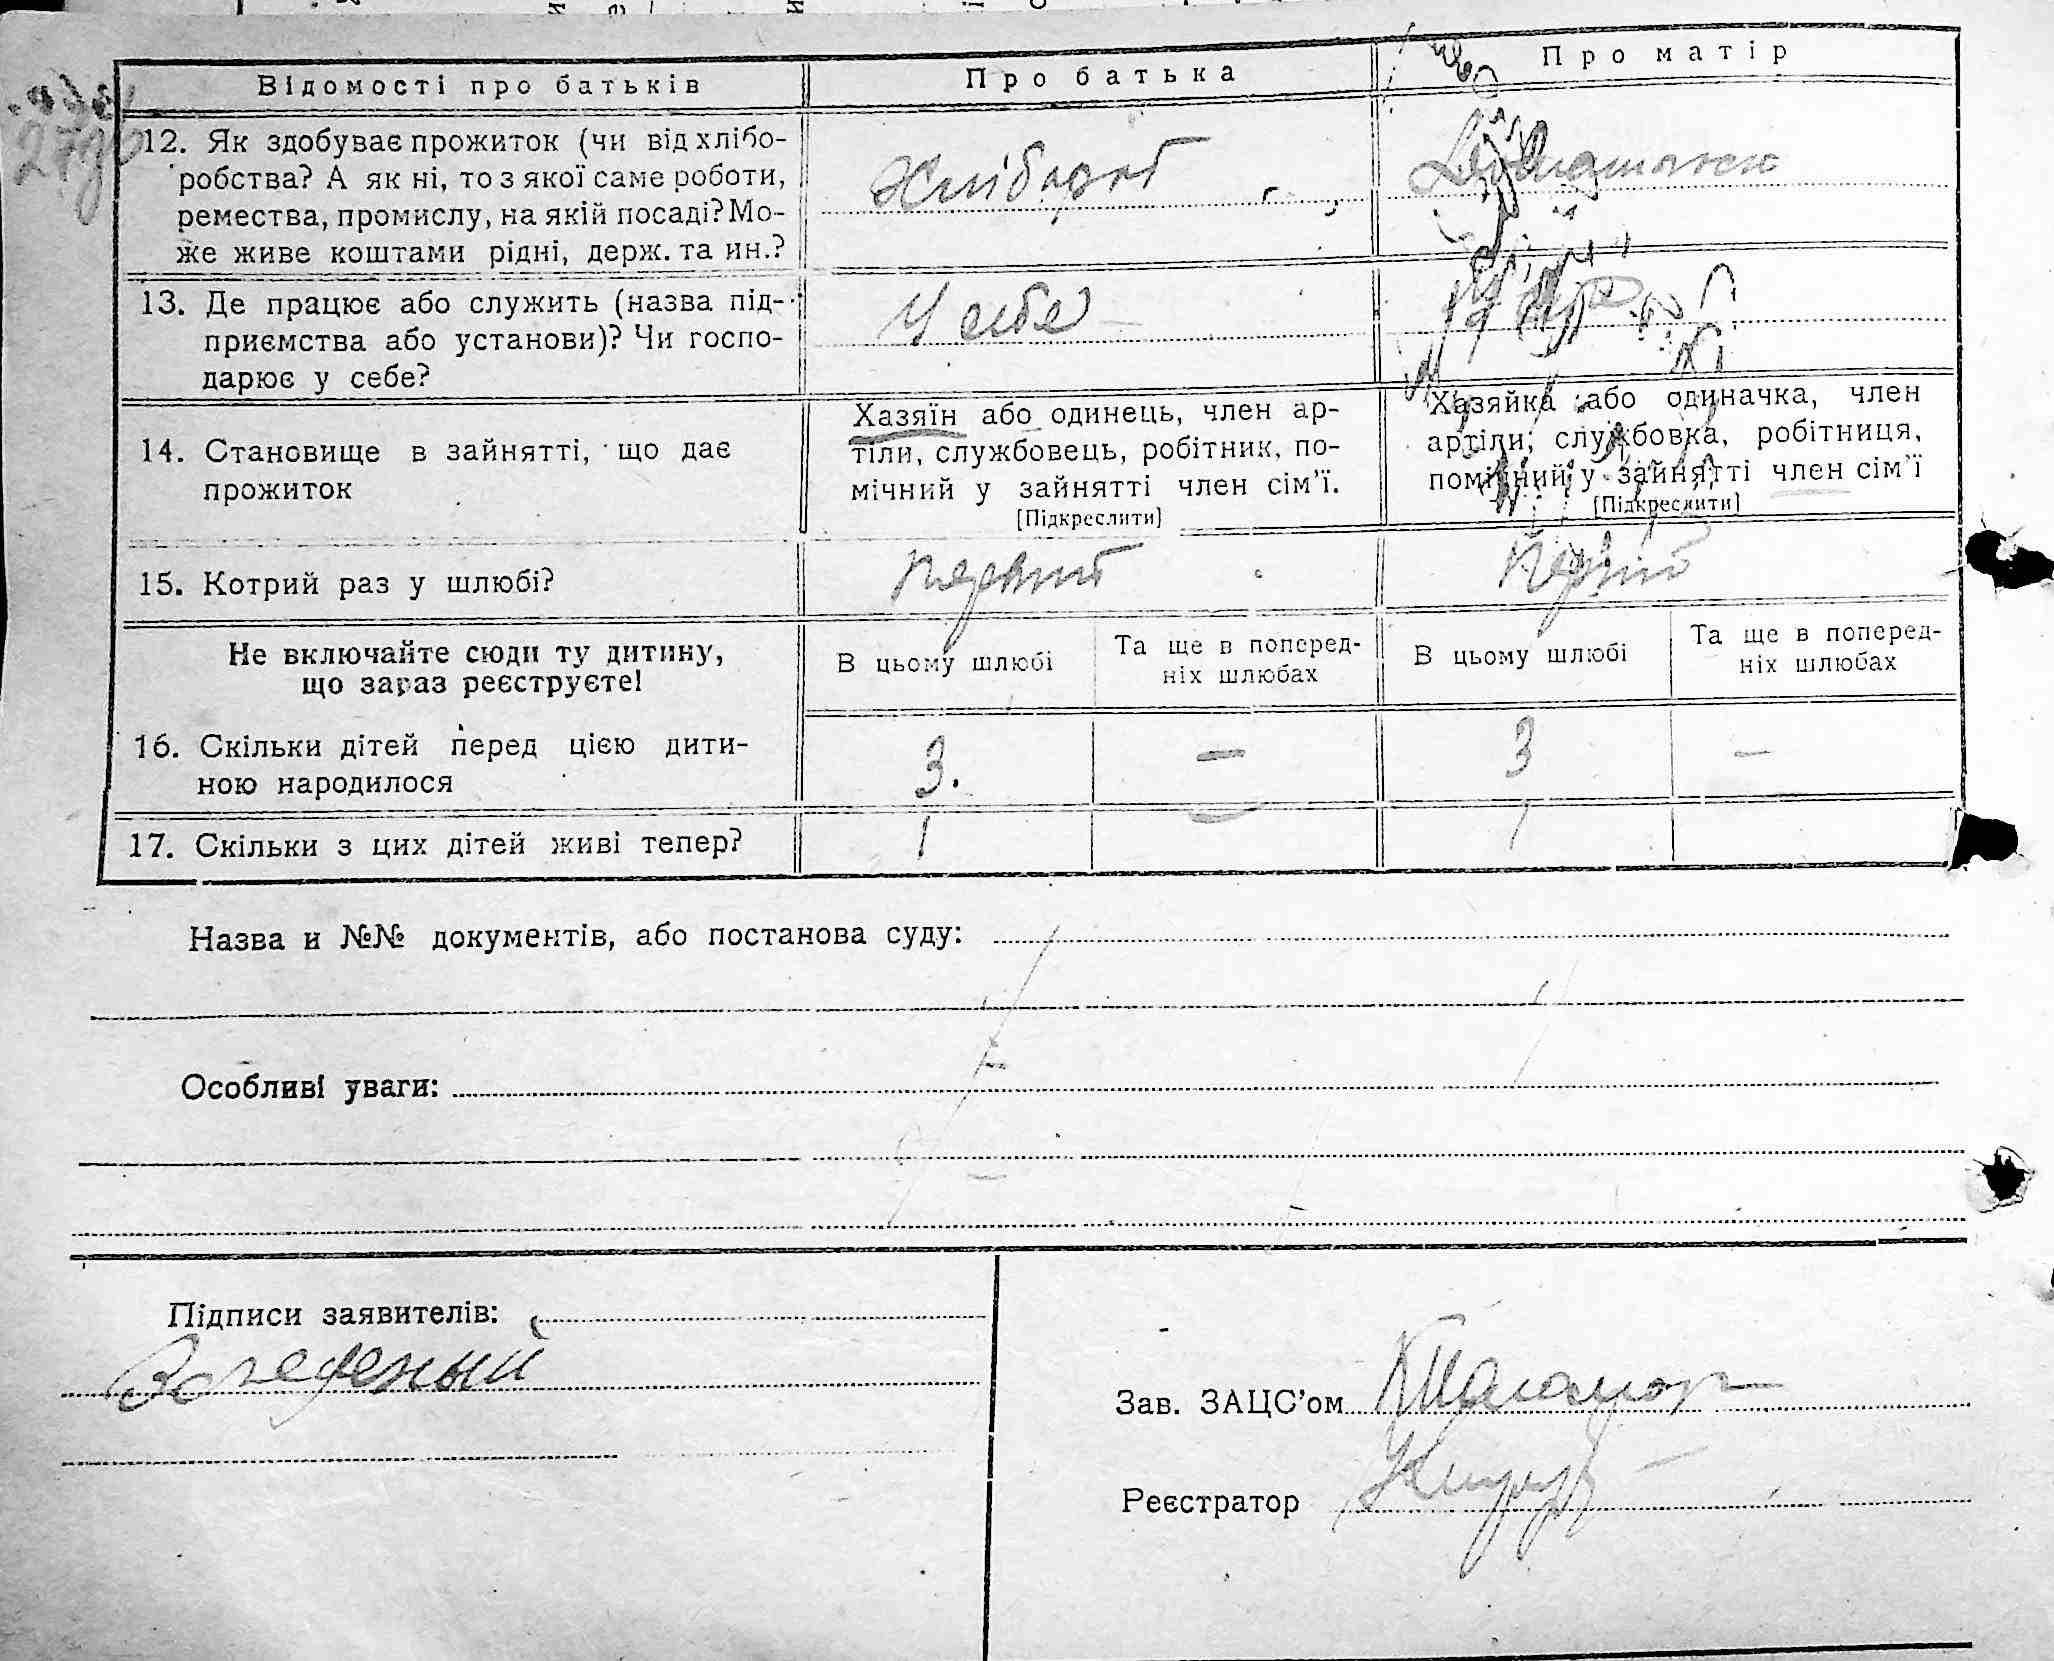 Відомості про батьків
Про батька
Про матір
12. Як здобуває прожиток (чи від хлібо-
робства? А як ні, то з якої саме роботи,
ремества, промислу, на якій посаді? Мо-
же живе коштами рідні, держ. та ин.?
Хлібороб
13. Де працює або служить (назва під-
приємства або установи)? Чи госпо-
дарює у себе?
У себе
14. Становище в зайнятті, що дає
прожиток
Хазяїн або одинець, член ар-
тіли, службовець, робітник, по-
мічний у зайнятті член сім'ї.
[Підкреслити]
Хазяйка або одиначка, член
артіли, службовка, робітниця,
помічний у зайнятті член сім'ї
[Підкреслити]
15. Котрий раз у шлюбі?
Не включайте сюди ту дитину,
що зараз реєструєте!
В цьому шлюбі
Та ще в поперед-
ніх шлюбах
В цьому шлюбі
Та ще в поперед-
ніх шлюбах
16. Скільки дітей перед цією дити-
ною народилося
3.
—
3
—
17. Скільки з цих дітей живі тепер?
1
—
1
Назва и №№ документів, або постанова суду:
Особливі уваги:
Підписи заявителів:
Зав. ЗАЦС'ом
Реєстратор